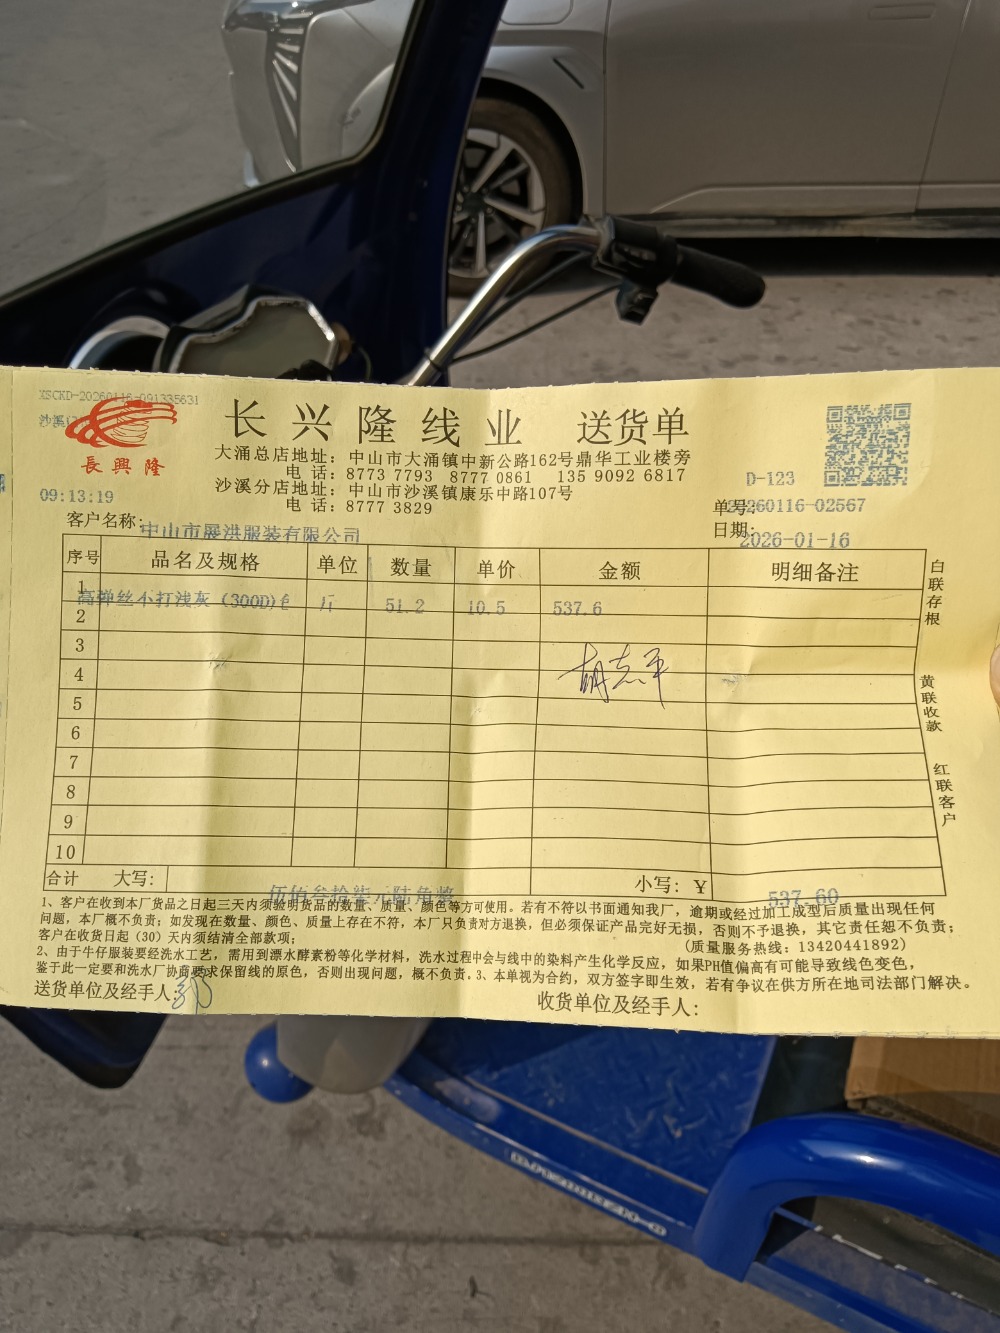 XSCKD-20260116-091335631
長興隆
长兴隆线业 送货单
大涌总店地址：中山市大涌镇中新公路162号鼎华工业楼旁
电 话：8773 7793 8777 0861 135 9092 6817
沙溪分店地址：中山市沙溪镇康乐中路107号
电 话：8777 3829
D-123
09:13:19
单号：20260116-02567
客户名称：中山市展洪服装有限公司
日期：2026-01-16
序号 品名及规格 单位 数量 单价 金额 明细备注
1 高弹丝不打浅灰（300D） 斤 51.2 10.5 537.6
2
3
4
胡志平
5
6
7
8
9
10
白联存根
黄联收款
红联客户
合计 大写：伍佰叁拾柒元陆角整 小写：￥ 537.60
1、客户在收到本厂货品之日起三天内须验明货品的数量、质量、颜色等方可使用。若有不符以书面通知我厂，逾期或经过加工成型后质量出现任何
问题，本厂概不负责；如发现在数量、颜色、质量上存在不符，本厂只负责对方退换，但必须保证产品完好无损，否则不予退换，其它责任恕不负责；
客户在收货日起（30）天内须结清全部款项； （质量服务热线：13420441892）
2、由于牛仔服装要经洗水工艺，需用到漂水酵素粉等化学材料，洗水过程中会与线中的染料产生化学反应，如果PH值偏高有可能导致线色变色，
鉴于此一定要和洗水厂协商要求保留线的原色，否则出现问题，概不负责。3、本单视为合约，双方签字即生效，若有争议在供方所在地司法部门解决。
送货单位及经手人： 收货单位及经手人：